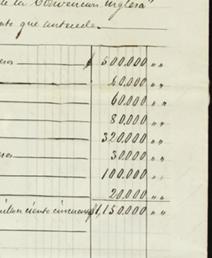 de la Convencion Inglesa"
que antecede.
$ 500.000 " "
60.000 " "
80.000 " "
320.000 " "
30.000 " "
100.000 " "
20.000 " "
ciento cincuenta $1,150.000 " "